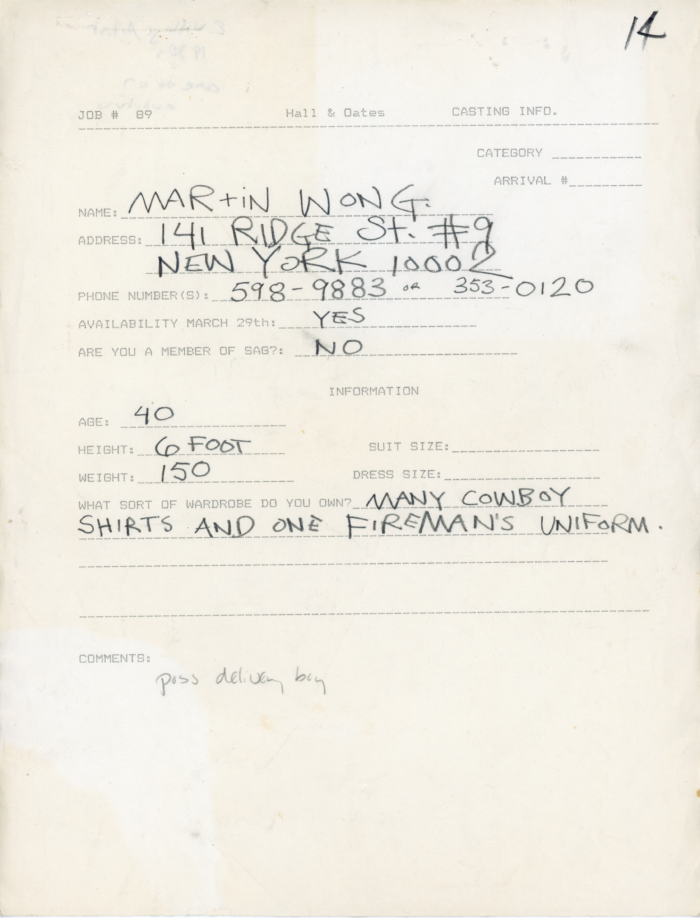 14
JOB # 89 Hall & Oates CASTING INFO.
CATEGORY
ARRIVAL #
NAME: MARTIN WONG.
ADDRESS: 141 RIDGE ST. #9
NEW YORK 10002
PHONE NUMBER(S): 598-9883 or 353-0120
AVAILABILITY MARCH 29th: YES
ARE YOU A MEMBER OF SAG?: NO
INFORMATION
AGE: 40
HEIGHT: 6 FOOT SUIT SIZE:
WEIGHT: 150 DRESS SIZE:
WHAT SORT OF WARDROBE DO YOU OWN? MANY COWBOY
SHIRTS AND ONE FIREMAN'S UNIFORM.
COMMENTS:
poss delivery boy